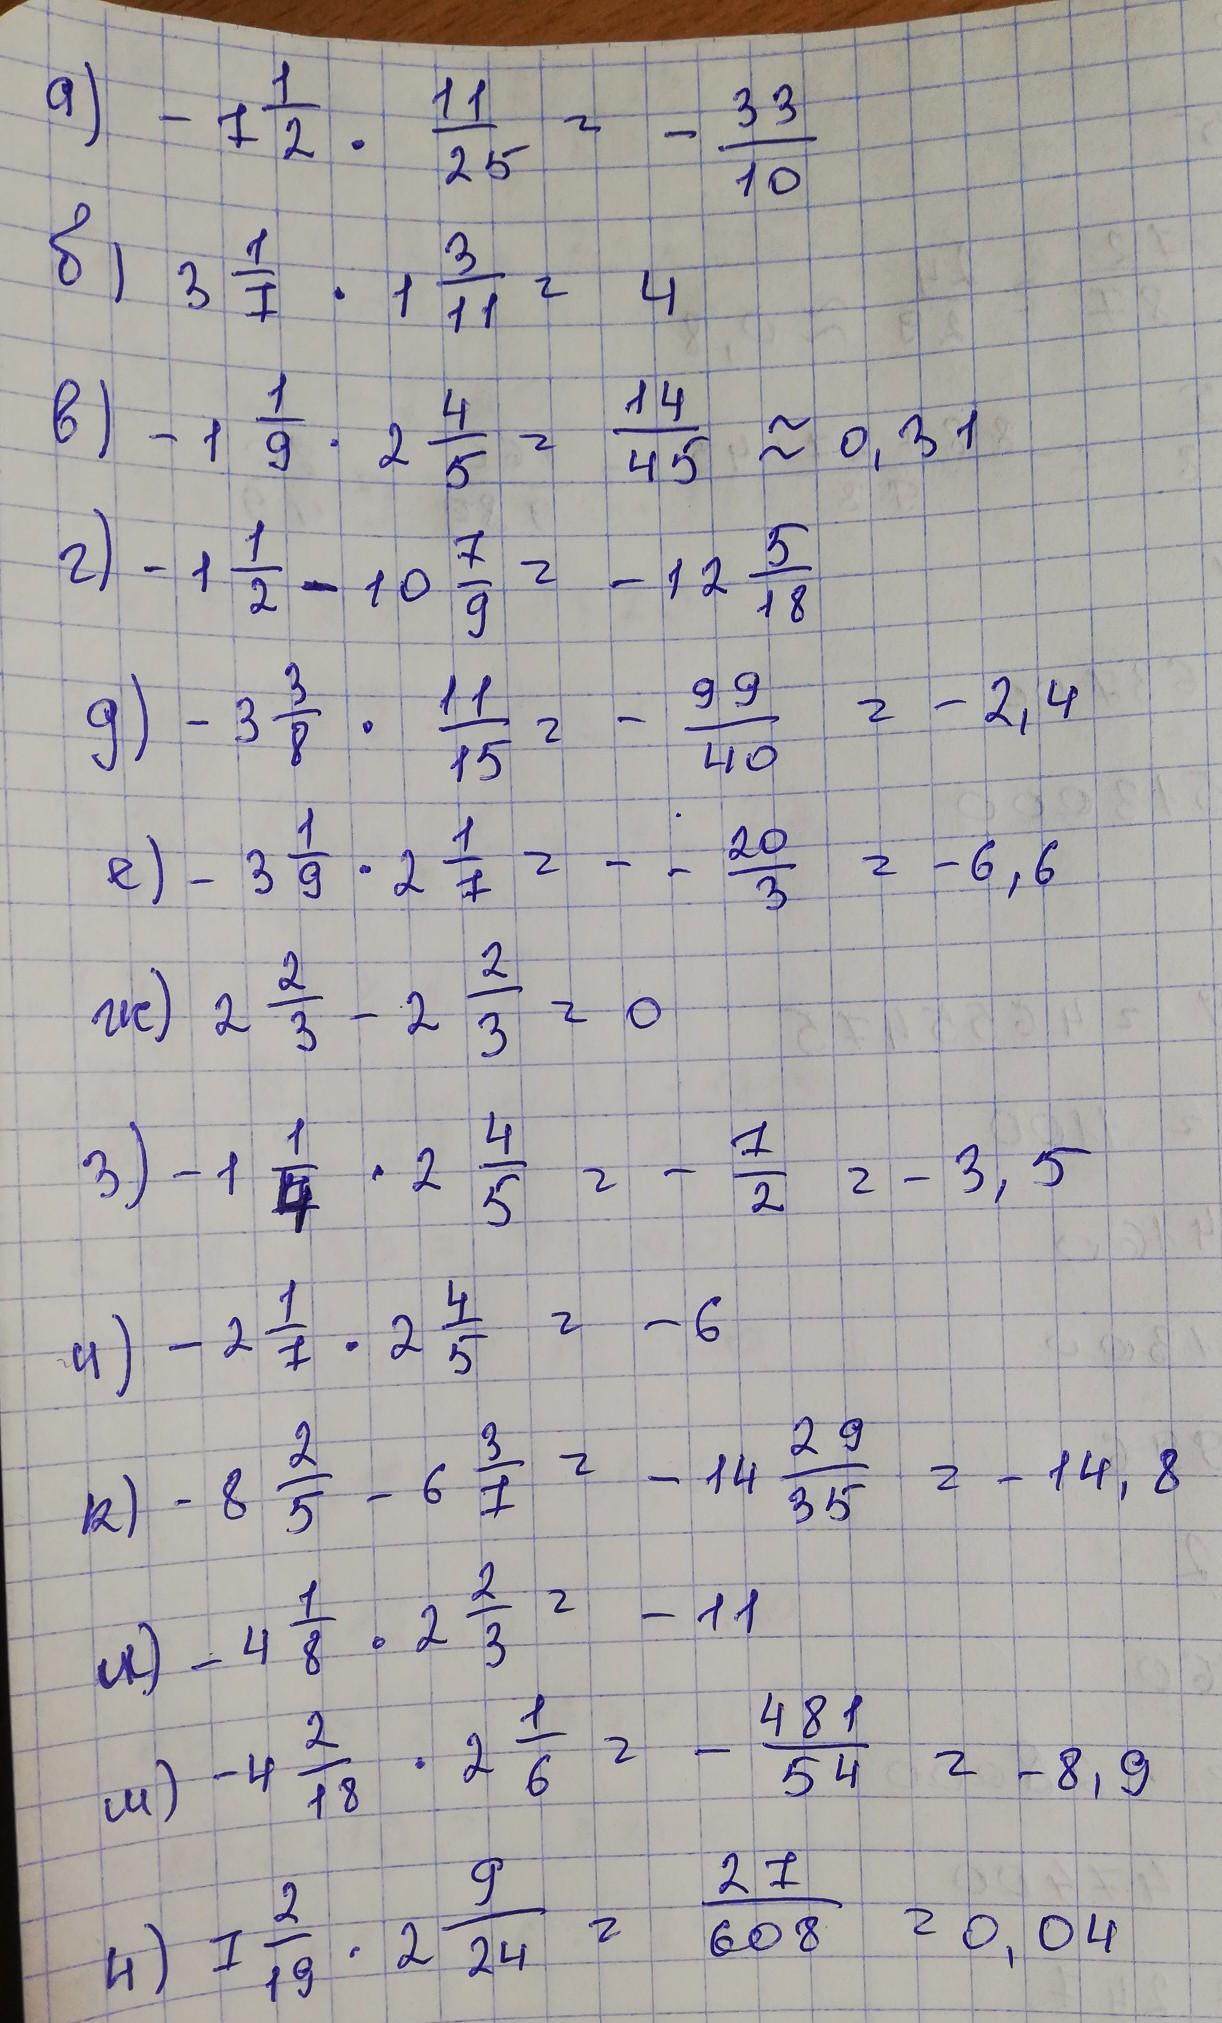 а) - 7 1/2 · 11/25 = - 33/10
б) 3 1/7 · 1 3/11 = 4
в) - 1 1/9 · 2 4/5 = 14/45 ≈ 0,31
г) - 1 1/2 - 10 7/9 = - 12 5/18
д) - 3 3/8 · 11/15 = - 99/40 = - 2,4
е) - 3 1/9 · 2 1/7 = - - 20/3 = - 6,6
ж) 2 2/3 - 2 2/3 = 0
з) - 1 1/4 · 2 4/5 = - 7/2 = - 3,5
и) - 2 1/7 · 2 4/5 = - 6
к) - 8 2/5 - 6 3/7 = - 14 29/35 = - 14,8
л) - 4 1/8 · 2 2/3 = - 11
м) - 4 2/18 · 2 1/6 = - 481/54 = - 8,9
н) 7 2/19 · 2 9/24 = 27/608 = 0,04